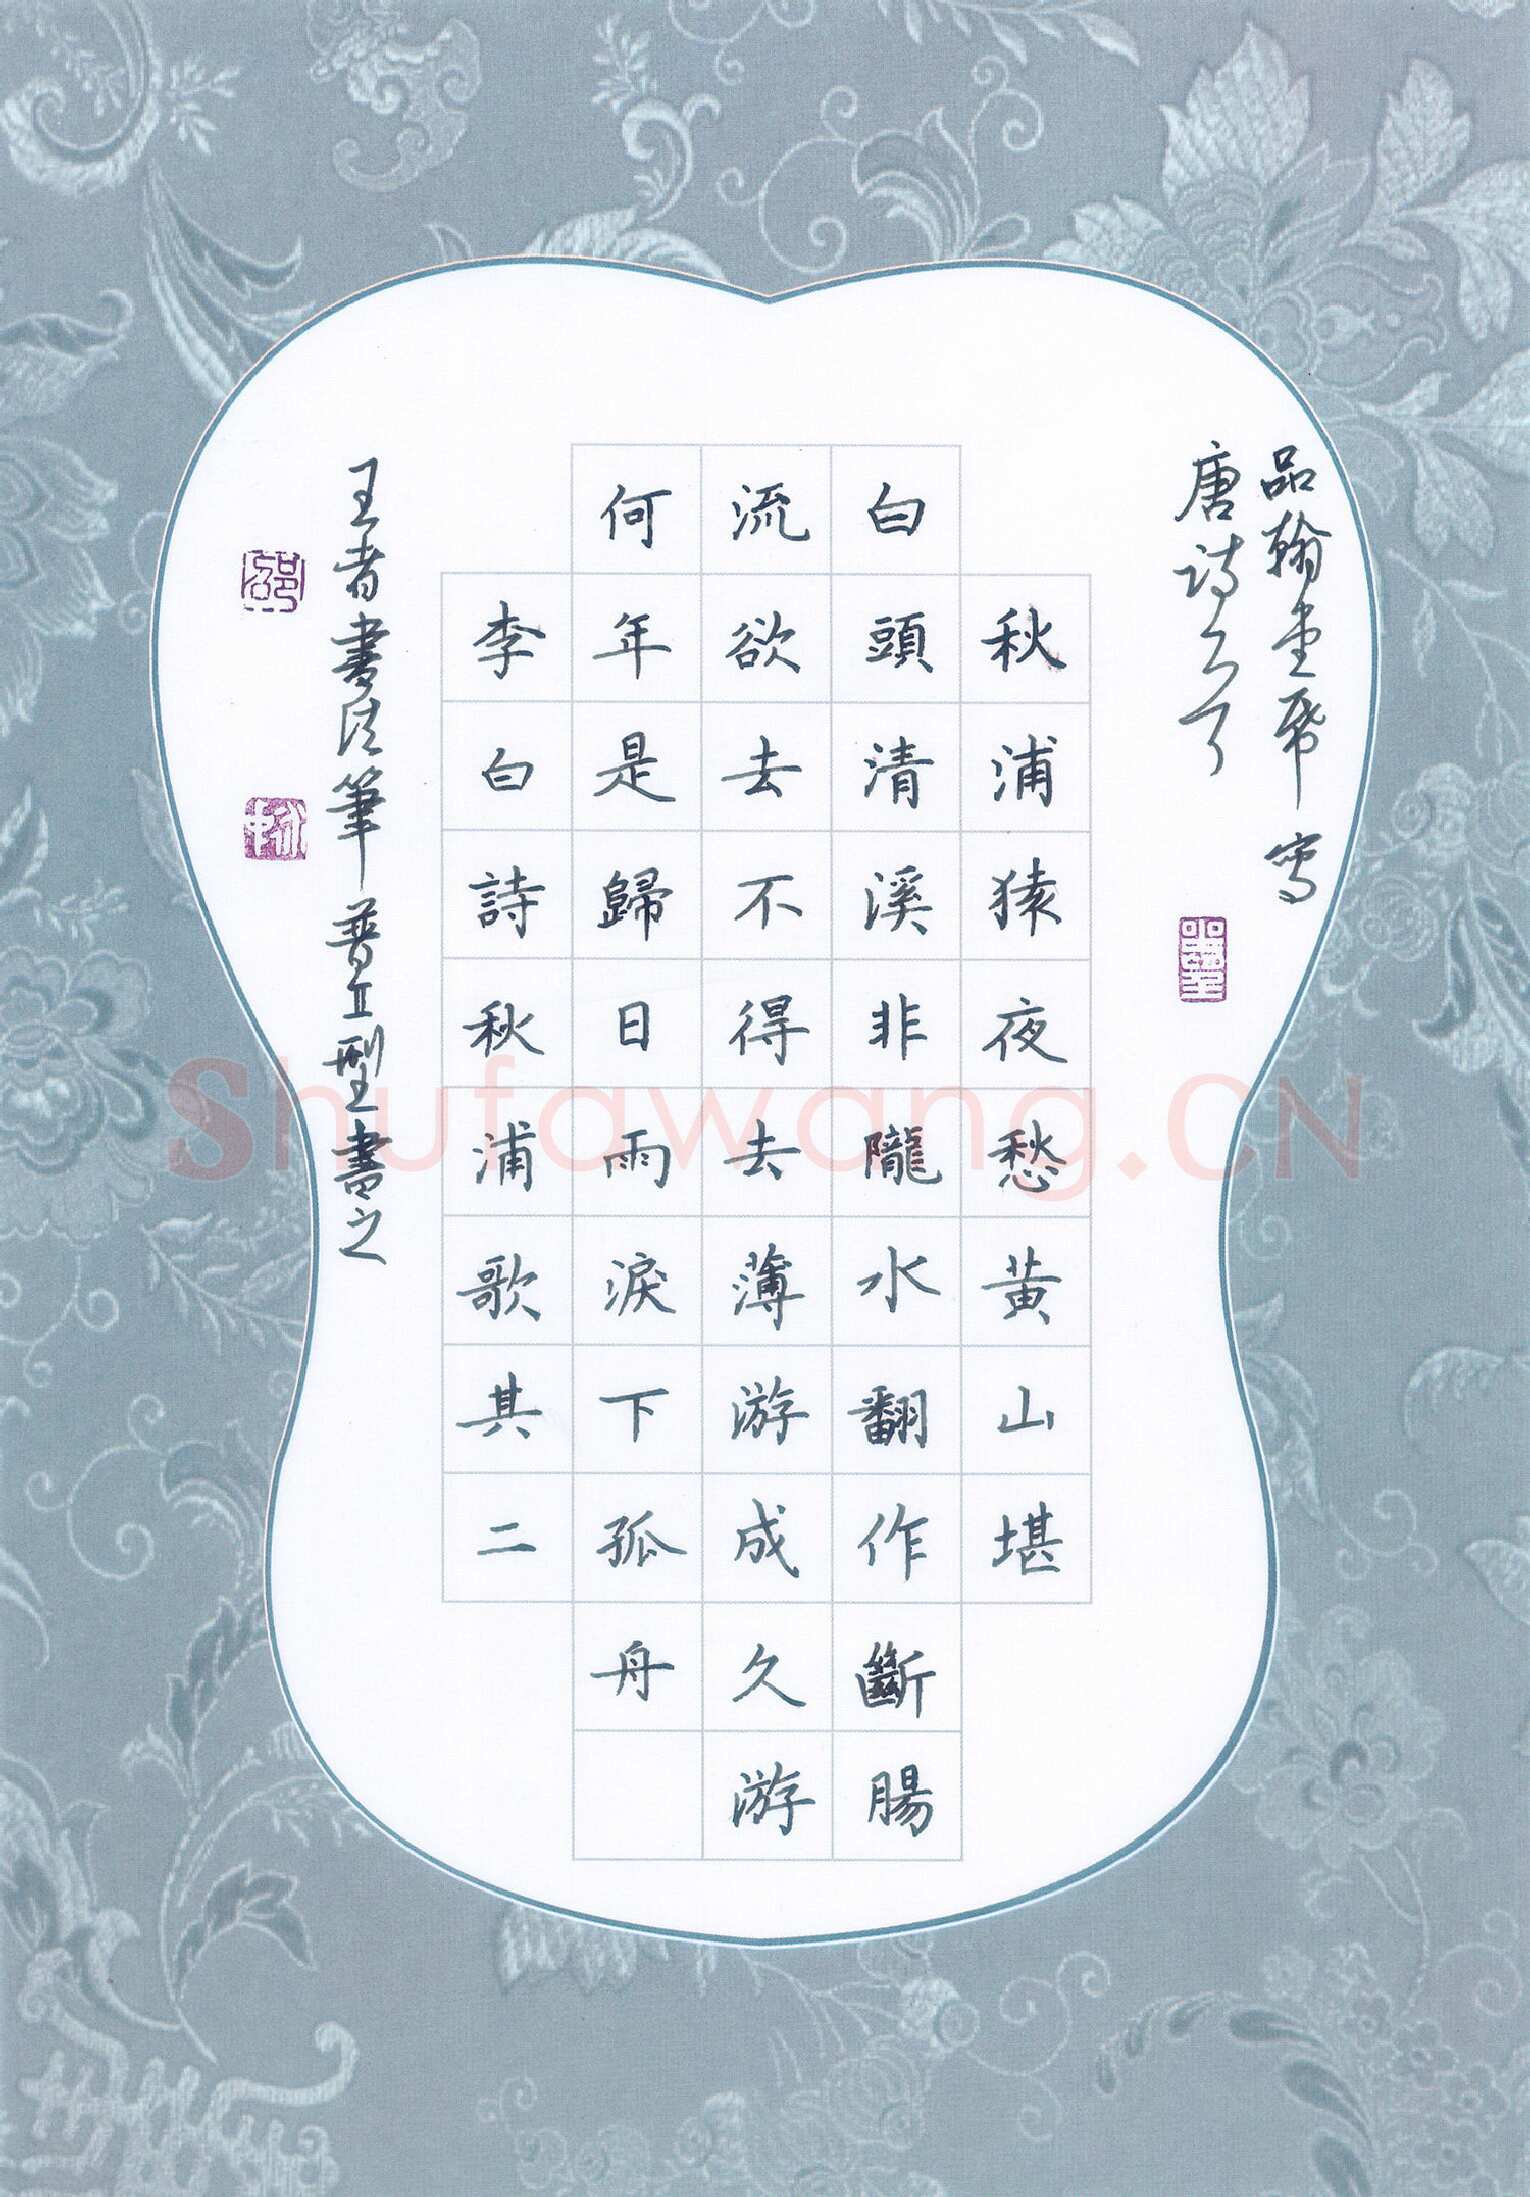 品翰堂帋 寫
唐诗
秋浦猿夜愁黄山堪
白頭清溪非隴水翻作斷腸
流欲去不得去薄游成久游
何年是歸日雨淚下孤舟
李白詩秋浦歌其二
王者書法筆普Ⅱ型書之
Shufawang.CN